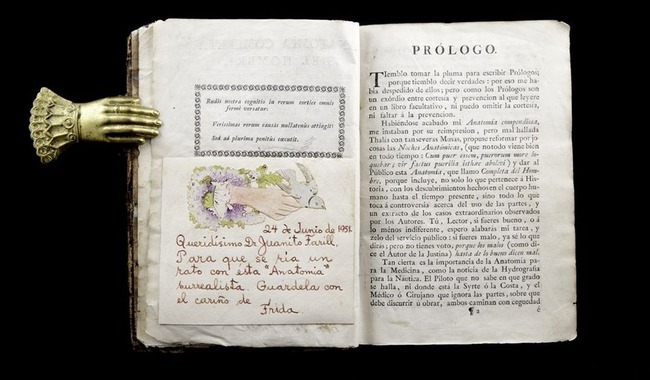 Rudis nostra cognitio in rerum cortice omnis
fermè versatur:
Verissimas rerum causas nullatenùs attingit:
Sed ad plurima penitùs cæcutit.
24 de Junio de 1951.
Queridísimo Dr Juanito Farill,
Para que se ría un
rato con esta "Anatomía"
surrealista. Guardela con
el cariño de
Frida.
PRÓLOGO.
Tlemblo tomar la pluma para escribir Prólogos;
porque tiemblo decir verdades: por eso me ha-
bia despedido de ellos; pero como los Prólogos son
un exórdio entre cortesía y prevencion al que leyere
en un libro facultativo, ni puedo omitir la cortesía,
ni faltar á la prevencion.
Habiéndose acabado mi Anatomía compendiosa,
me instaban por su reimpresion, pero mal hallada
Thalía con tan severas Musas, propuse reformar por jo-
cosas las Noches Anatómicas, (que no todo viene bien
en todo tiempo: Cum puer essem, puerorum more lo-
quebar; vir factus puerilia latthæ abolevi) y dar al
Público esta Anatomía, que llamo Completa del Hom-
bre, porque incluye, no solo lo que pertenece á His-
toria, con los descubrimientos hechos en el cuerpo huma-
no hasta el tiempo presente, sino todo lo que
toca á controversia acerca del uso de las partes, y
un extracto de los casos extraordinarios observados
por los Autores. Tú, Lector, si fueres bueno, ó á
lo ménos indiferente, espero alabarás mi tarea, y
zelo del servicio público: si fueres malo, ya sé lo que
dirás; pero no tienes voto, porque los malos (como di-
ce el Autor de la Justina) hasta de lo bueno dicen mal.
Tan cierta es la importancia de la Anatomía pa-
ra la Medicina, como la noticia de la Hydrografía
para la Naútica. El Piloto que no sabe en que grado
se halla, ni donde está la Syrte ó la Costa, y el
Médico ó Cirujano que ignora las partes, sobre que
debe discurrir ú obrar, ambos caminan con ceguedad
¶2 é